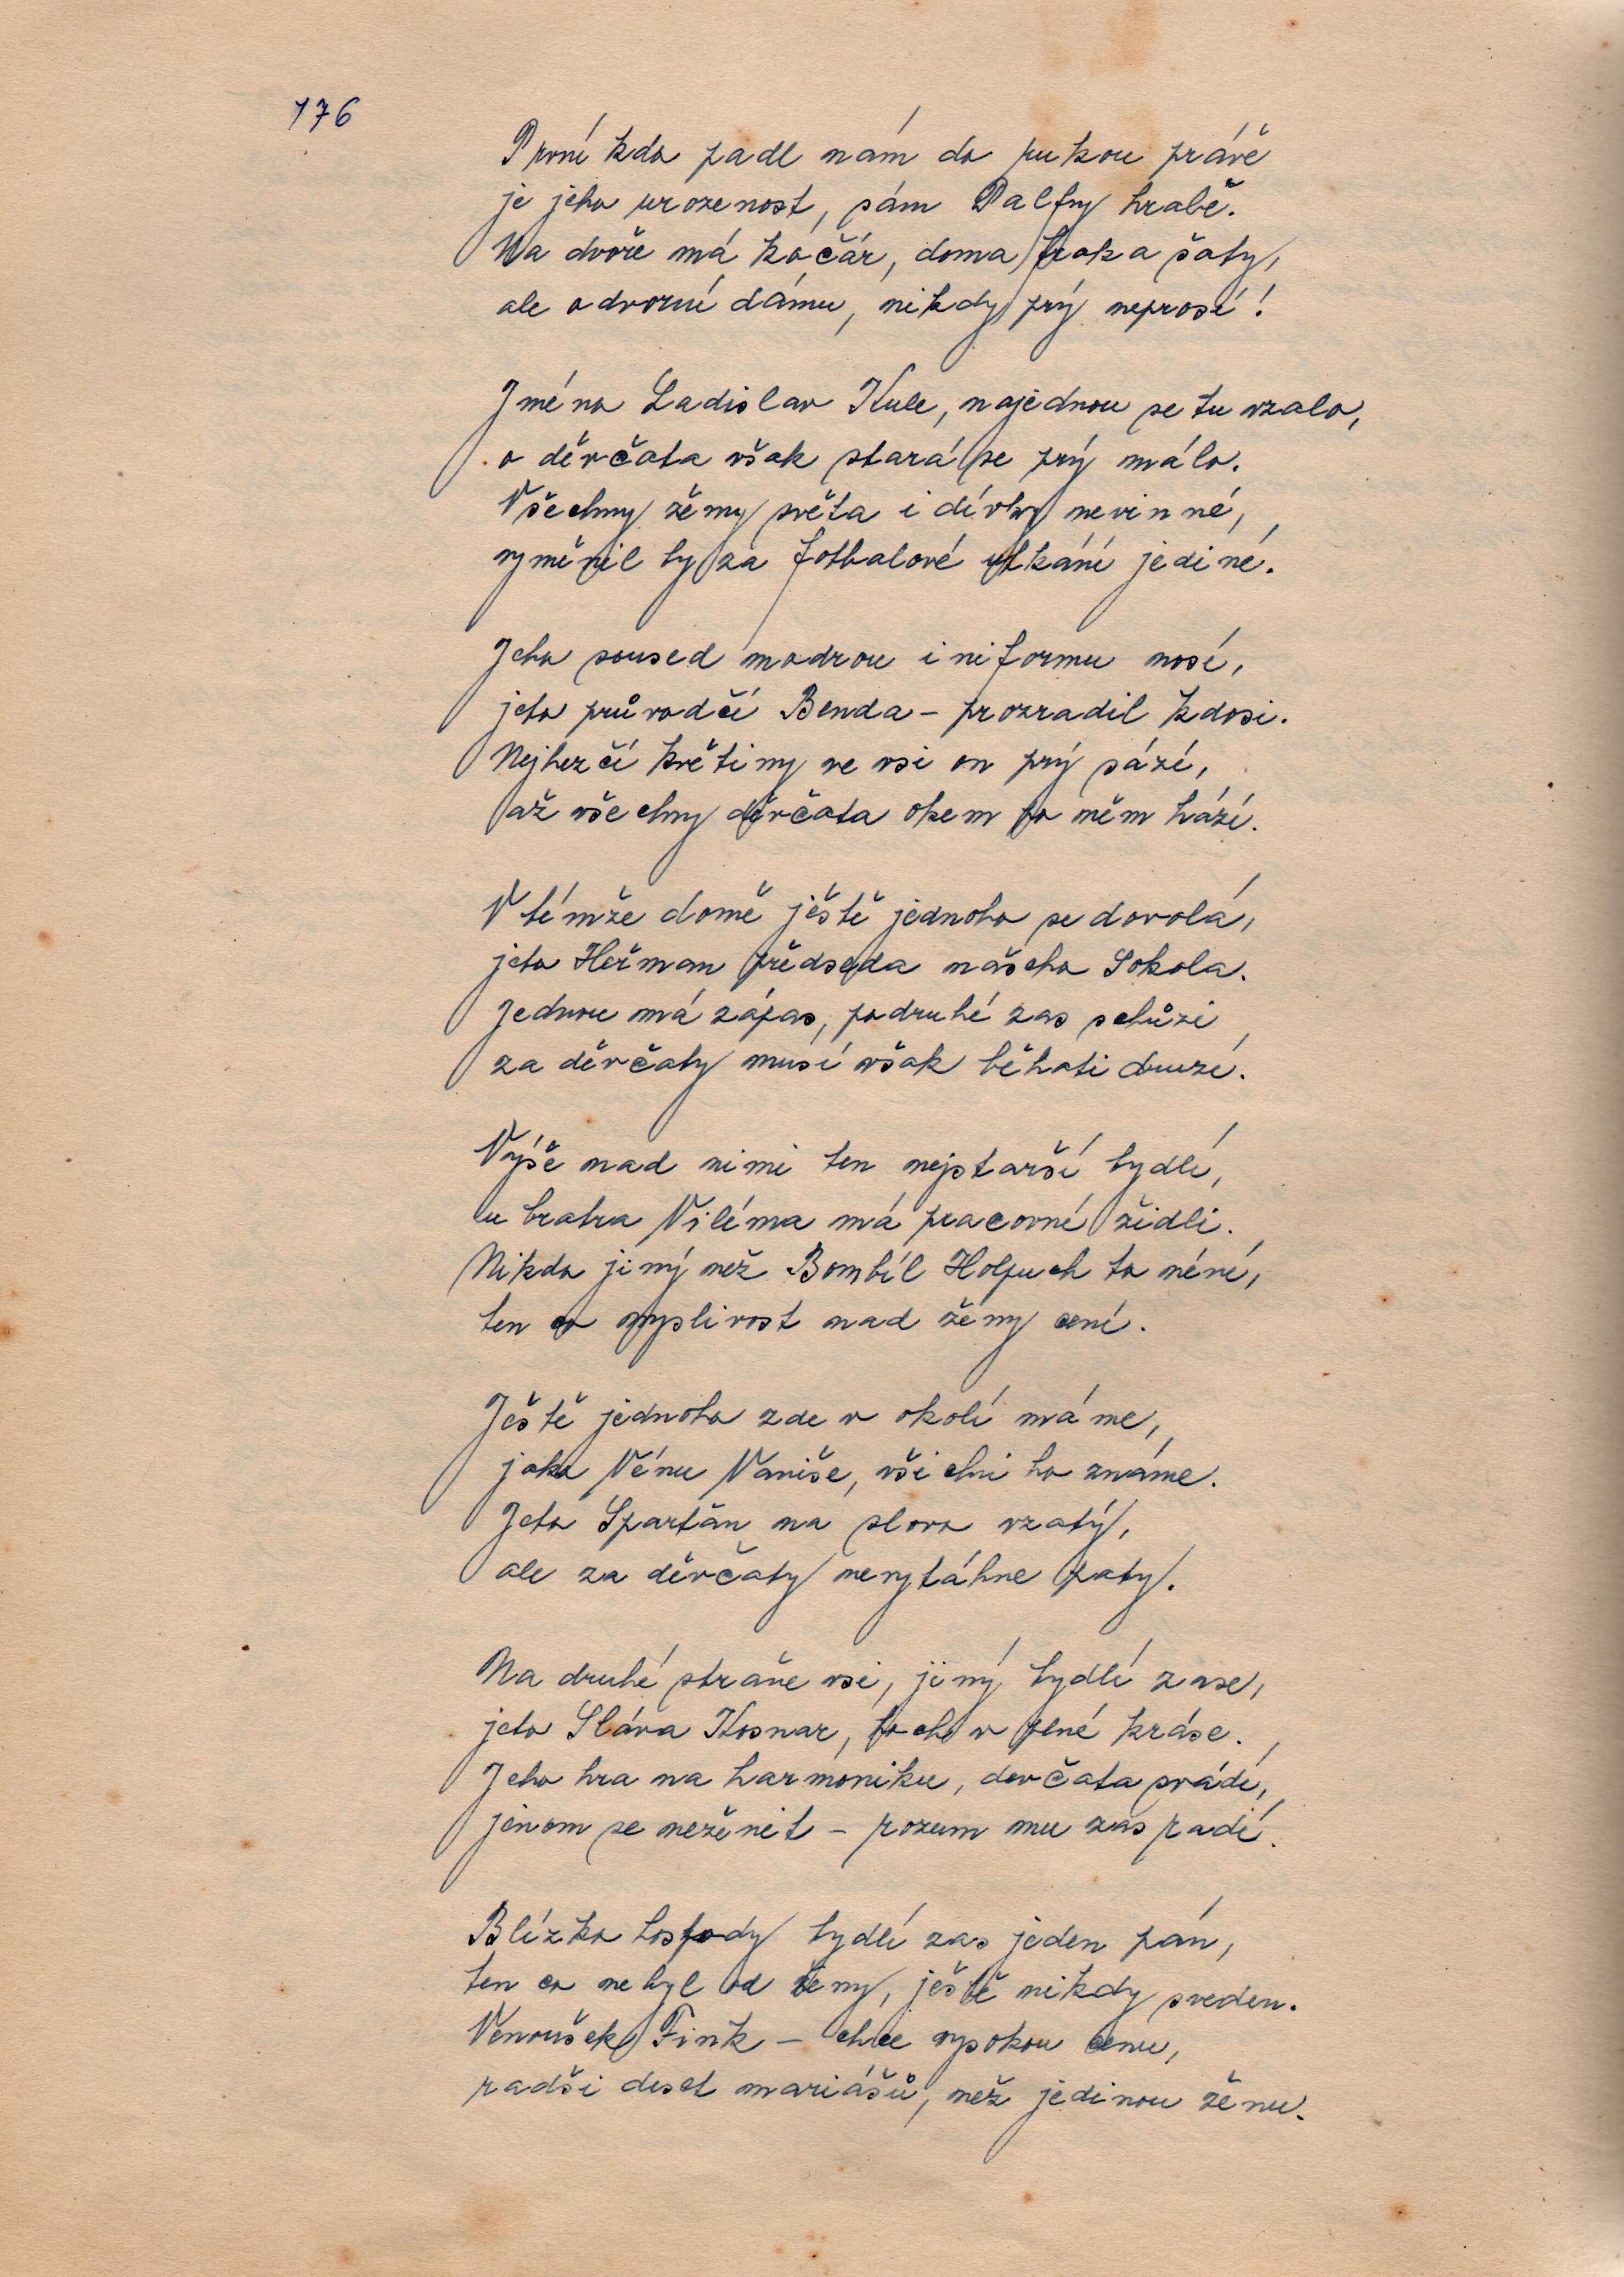 176
První kdo padl nám do rukou právě
je jeho urozenost, sám Palfny hrabě.
Na dvoře má kočár, doma frak a šaty,
ale o dvorní dámu, nikdy prý neprosí!
Jméno Ladislav Kule, najednou se tu vzalo,
o děvčata však stará se prý málo.
Všechny ženy světa i dívky nevinné,
vyměnil by za fotbalové utkání jediné.
Jeho soused modrou iniformu nosí,
jeto průvodčí Benda – prozradil kdosi.
Nejhezčí květiny ve vsi on prý sází,
až všechny děvčata okem po něm hází.
V témže domě ještě jednoho se dovolá,
jeto Heřman předseda našeho Sokola.
Jednou má zápas, podruhé zas schůzi
za děvčaty musí však běhati druzí.
Výše nad nimi ten nejstarší bydlí,
u bratra Viléma má pracovní židli.
Nikdo jiný než Bombíl Holpuch to néní,
ten co myslivost nad ženy cení.
Ještě jednoho zde v okolí máme,
jako Vénu Vaniše, všichni ho známe.
Jeto Sparťan na slovo vzatý,
ale za děvčaty nevytáhne paty.
Na druhé straňe vsi, jiný bydlí zase,
jeto Sláva Kosnar, hoch v plné kráse.
Jeho hra na harmoniku, devčata svádí,
jenom se neženit – rozum mu zas radí.
Blízko hospody bydlí zas jeden pán,
ten co nebyl od ženy, ještě nikdy sveden.
Venoušek Fink – chce vysokou cenu,
radši deset mariášů, než jedinou ženu.